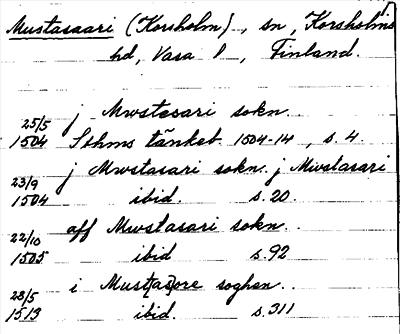 Mustasaari (Korsholm), sn, Korsholms
hd, Vasa l, Finland.
j Mwstesari sokn.
25/5
1504 Sthms tänkeb. 1504-14, s. 4.
j Mwstasari sokn. j Mwstasari
23/9
1504 ibid. s. 20.
aff Mwstasari sokn.
22/10
1505 ibid s. 92
i Must[as]ore soghen.
28/5
1513 ibid. s. 311